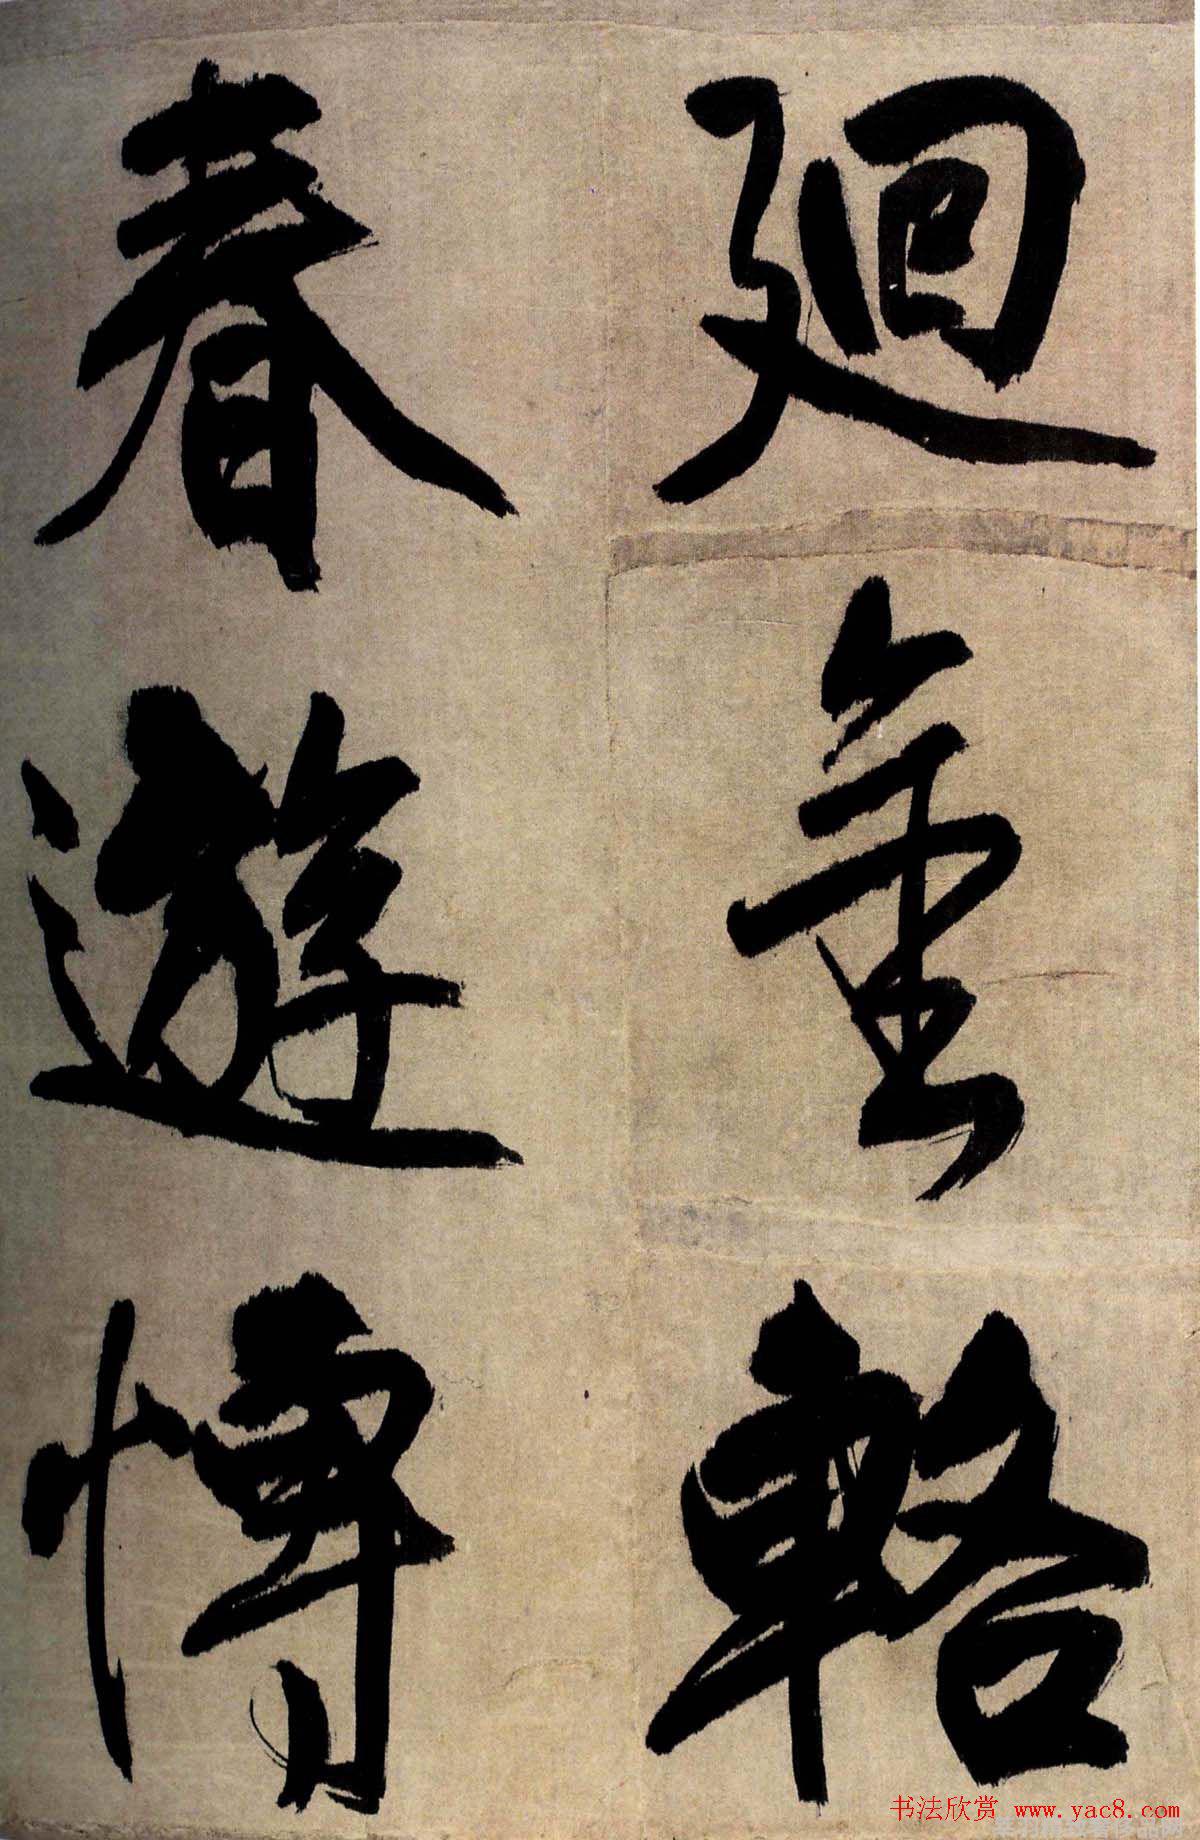 迴金輅
春遊博
书法欣赏 www.yac8.com